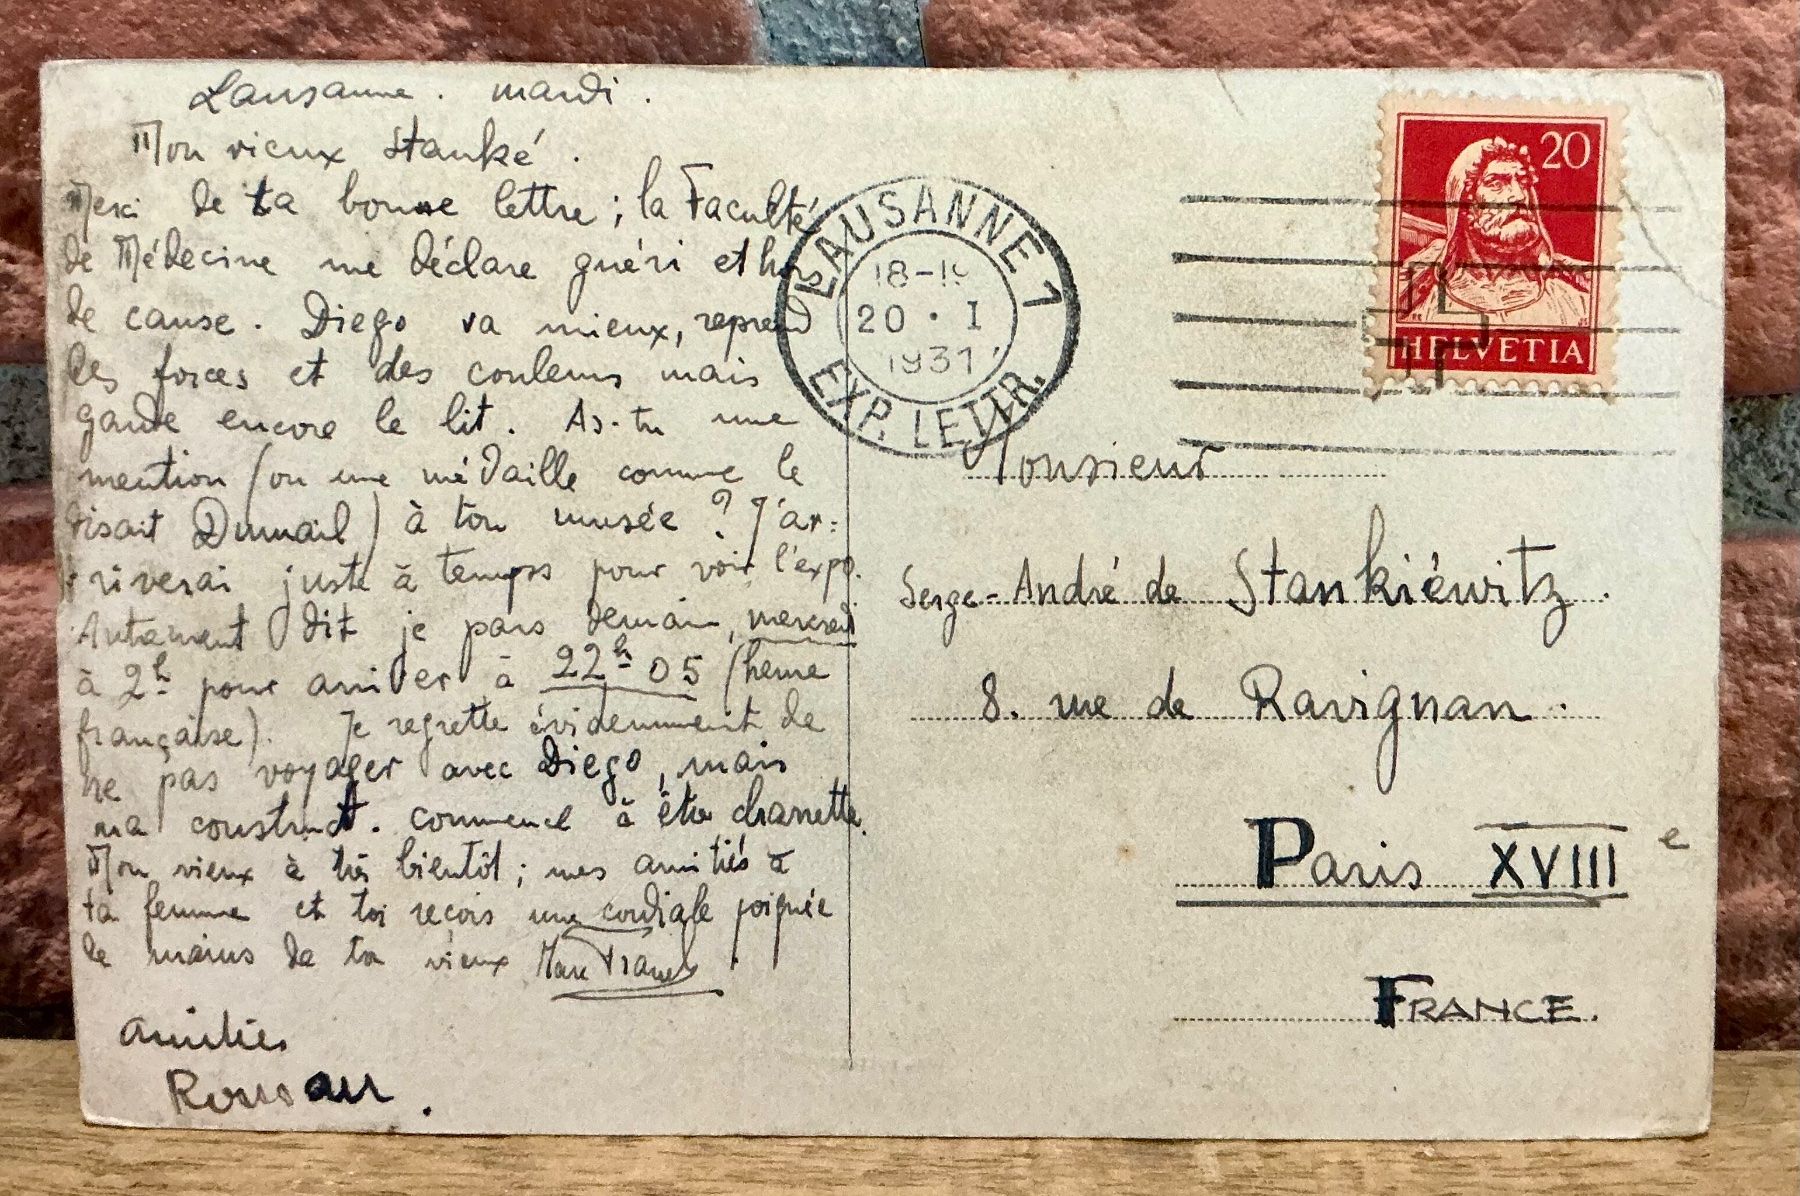 Lausanne. mardi.
Mon vieux Stanké.
Merci de ta bonne lettre ; la Faculté
de Médecine me déclare guéri et hors
de cause. Diego va mieux, reprend
des forces et des couleurs mais
garde encore le lit. As-tu une
mention (ou une médaille comme le
disait Dumail) à ton musée ? J'ar=
riverai juste à temps pour voir l'expo.
Autrement dit je pars demain, mercredi
à 2h pour arriver à 22h 05 (heure
française). Je regrette évidemment de
ne pas voyager avec Diego, mais
ma construct. commence à être charrette.
Mon vieux à très bientôt ; mes amitiés à
ta femme et toi reçois une cordiale poignée
de mains de ton vieux Marc
amitiés
LAUSANNE 1
20 . I
1931
EXP. LETTR.
20
HELVETIA
Monsieur
Serge-André de Stankiéwitz.
8. rue de Ravignan.
Paris XVIII e
FRANCE.